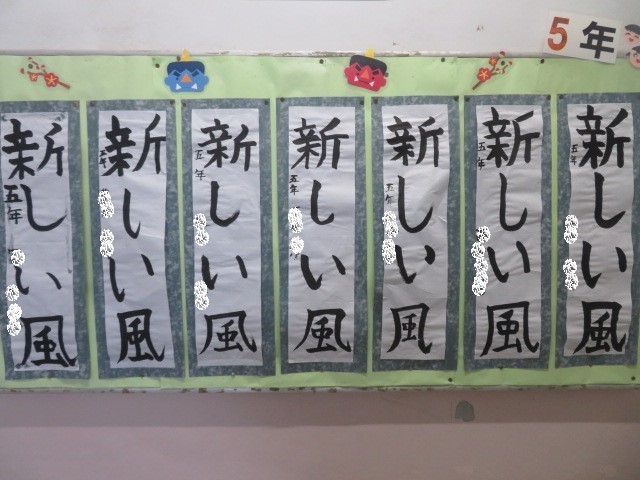 5年
新しい風
五年
新しい風
五年
新しい風
五年
新しい風
五年
新しい風
五年
新しい風
五年
新しい風
五年